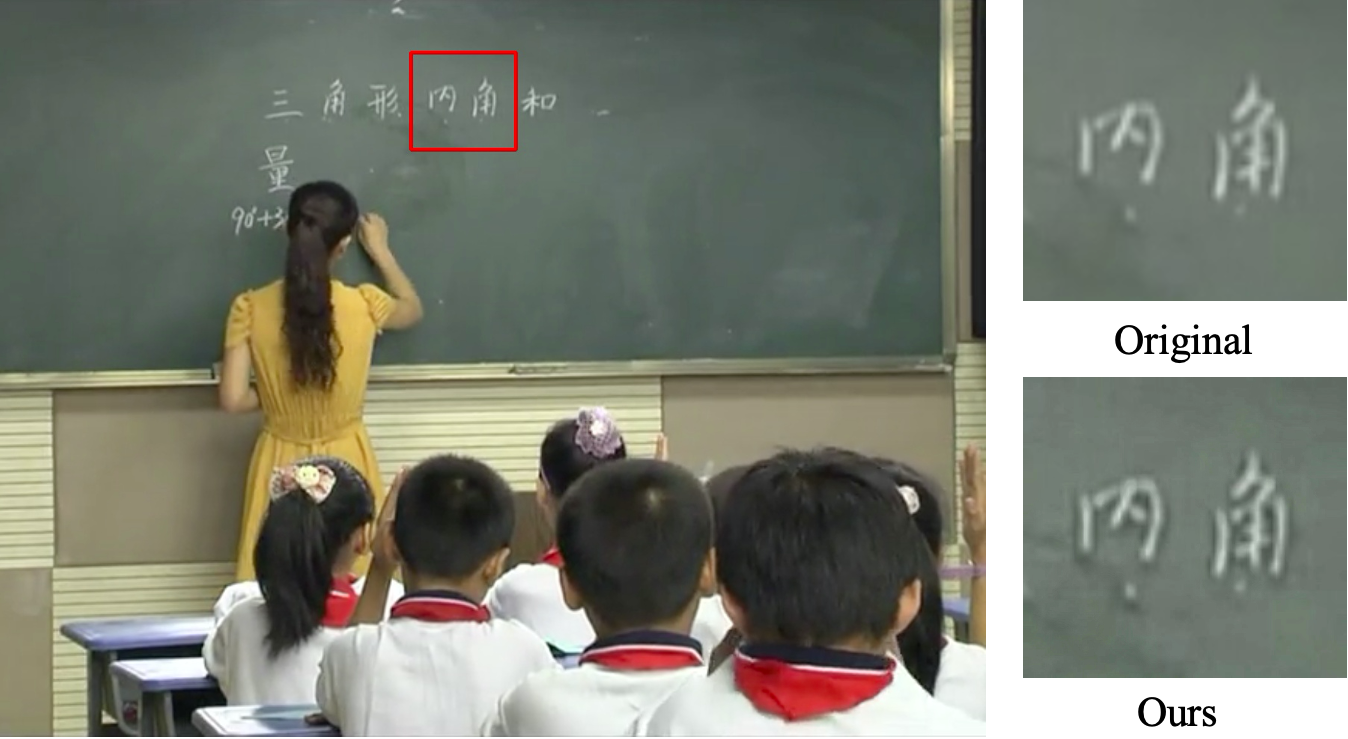 三角形内角和
量
90°+3
内角
Original
内角
Ours